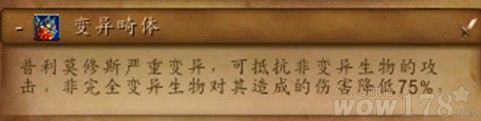 - 变异畸体
普利莫修斯严重变异，可抵抗非变异生物的攻
击。非完全变异生物对其造成的伤害降低75%。
wow178.com